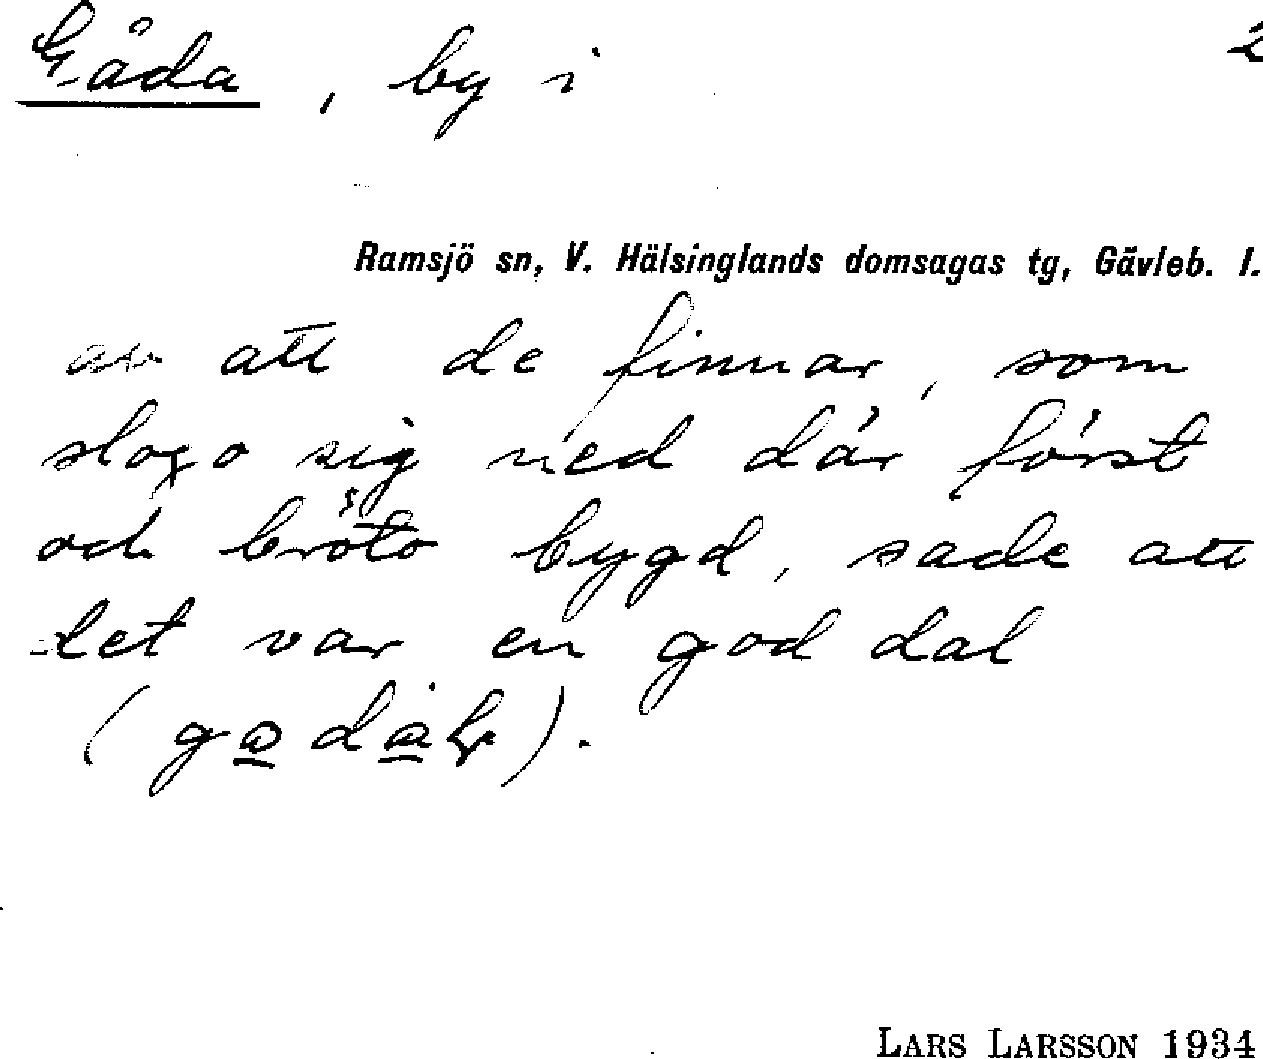 Gåda, by i 2
Ramsjö sn, V. Hälsinglands domsagas tg, Gävleb. l.
av att de finnar, som
slogo sig ned där först
och bröto bygd, sade att
det var en god dal
LARS LARSSON 1934